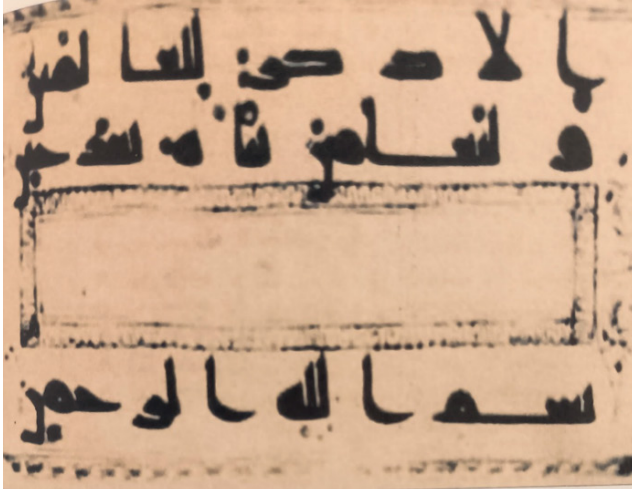 ا لا ذ كر للعا لمين
و لتعلمن نبا ه بعد حين
بسم ا لله ا لر حمن